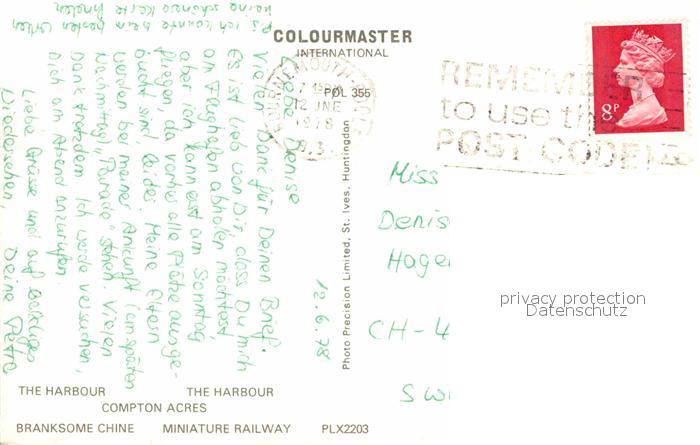 COLOURMASTER
INTERNATIONAL
POL 355
12 JNE
1978
REMEMBER
to use the
POST CODE
8P
12.6.78
Liebe Denise
Vielen Dank für Deinen Brief.
Es ist lieb von Dir, dass Du mich
am Flughafen abholen möchtest,
aber ich kann erst am Sonntag
fliegen, da vorher alle Plätze ausge-
bucht sind, leider. Meine Eltern
werden bei meiner Ankunft (am späten
Nachmittag) "Parade" stehen. Vielen
Dank trotzdem. Ich werde versuchen,
Dich am Abend anzurufen.
Liebe Grüsse und auf baldiges
Wiedersehen, Deine Petra
P.S. ich konnte beim besten Willen
keine schönere Karte finden
Photo Precision Limited, St. Ives, Huntingdon
Miss
Denis
Hage
CH-4
SW
privacy protection
Datenschutz
THE HARBOUR THE HARBOUR
COMPTON ACRES
BRANKSOME CHINE MINIATURE RAILWAY PLX2203